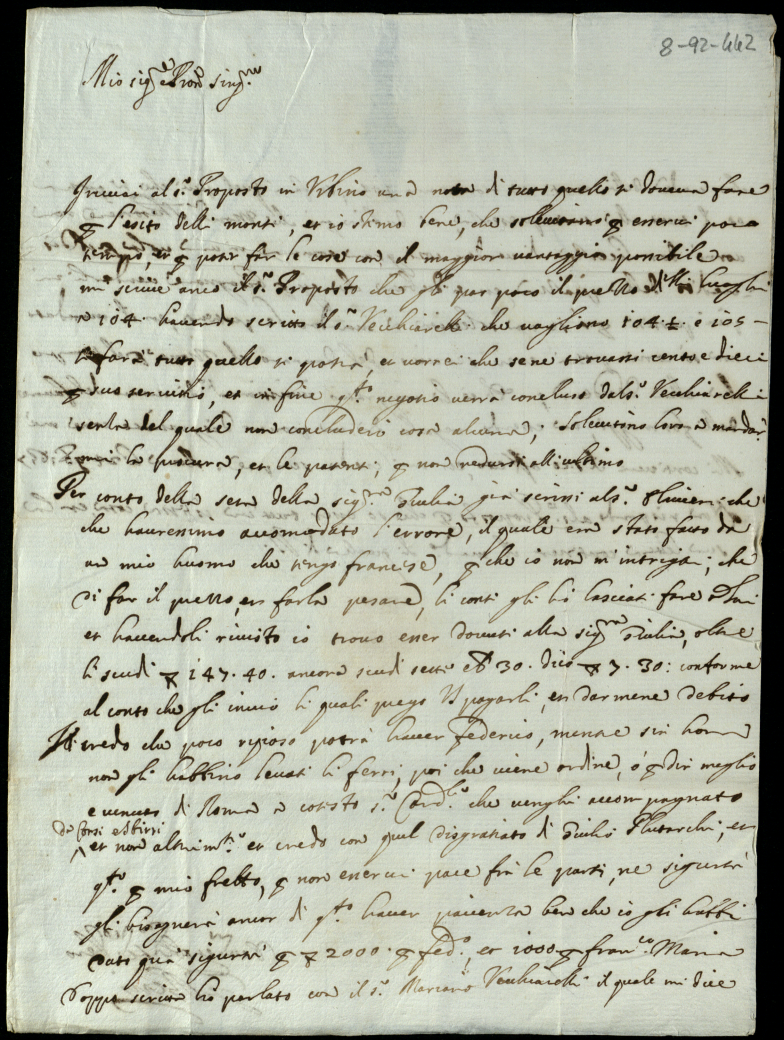 8-92-442
Mio sig.re e Pron sing.mo
Inviai al s.r Proposto in Urbino una nota di tutto quello si doveva fare
p l'esito delli monti, et io stimo bene, che solecitano p esserci poco
tempo, et p poter far le cose con il maggior vantaggio possibile
mi scrive anco il s.r Proposto che gli par poco il prezzo delli luoghi
a 104. havendo scritto il s.r Vecchiarelli che vagliono 104 e 105
si farà tutto quello si potrà, et vorrei che se ne trovassi cento e dieci
p suo servitio, et in fine q.to negotio verrà concluso dal s.r Vecchiarelli
senza del quale non concluderò cosa alcuna; Solecitino loro a mandar
mi la procura, et le patenti, p non redursi all'ultimo
Per conto della seta della sig.ra Giulia già scrissi al s.r che
che haveressimo accomodato l'errore, il quale era stato fatto da
un mio huomo che tengo francese, p che io non m'intrigai; che
di far il prezzo, et farla pesare, li conti gli hò lasciati fare à lui
et havendoli rivisto io trovo esser dovuti alla sig.ra Giulia, oltre
li scudi 147.40. ancora scudi setti et 30. dico 7.30: conforme
al conto che gli invio li quali prego VS pagarli, et darmene debito
Io credo che poco riposo potrà haver Federico, mentre sin hora
non gli habbino levati li ferri, poi che viene ordine, ò p dir meglio
è venuto di Roma a cotesto s.r Card.le che venghi accompagnato
da Corsi e sbirri
et non altrim.te et credo con quel disgratiato di Giulio Plutarchi, et
q.to p mio fretto, p non esserci pace frà le parti, ne sigurtà
gli bisognerà ancor di q.to haver patienza ben che io gli habbi
dato quà sigurtà p 2000. p fed.o, et 1000 p fran.co Maria
Doppo scritto hò parlato con il s.r Mariano Vecchiarelli il quale mi dice